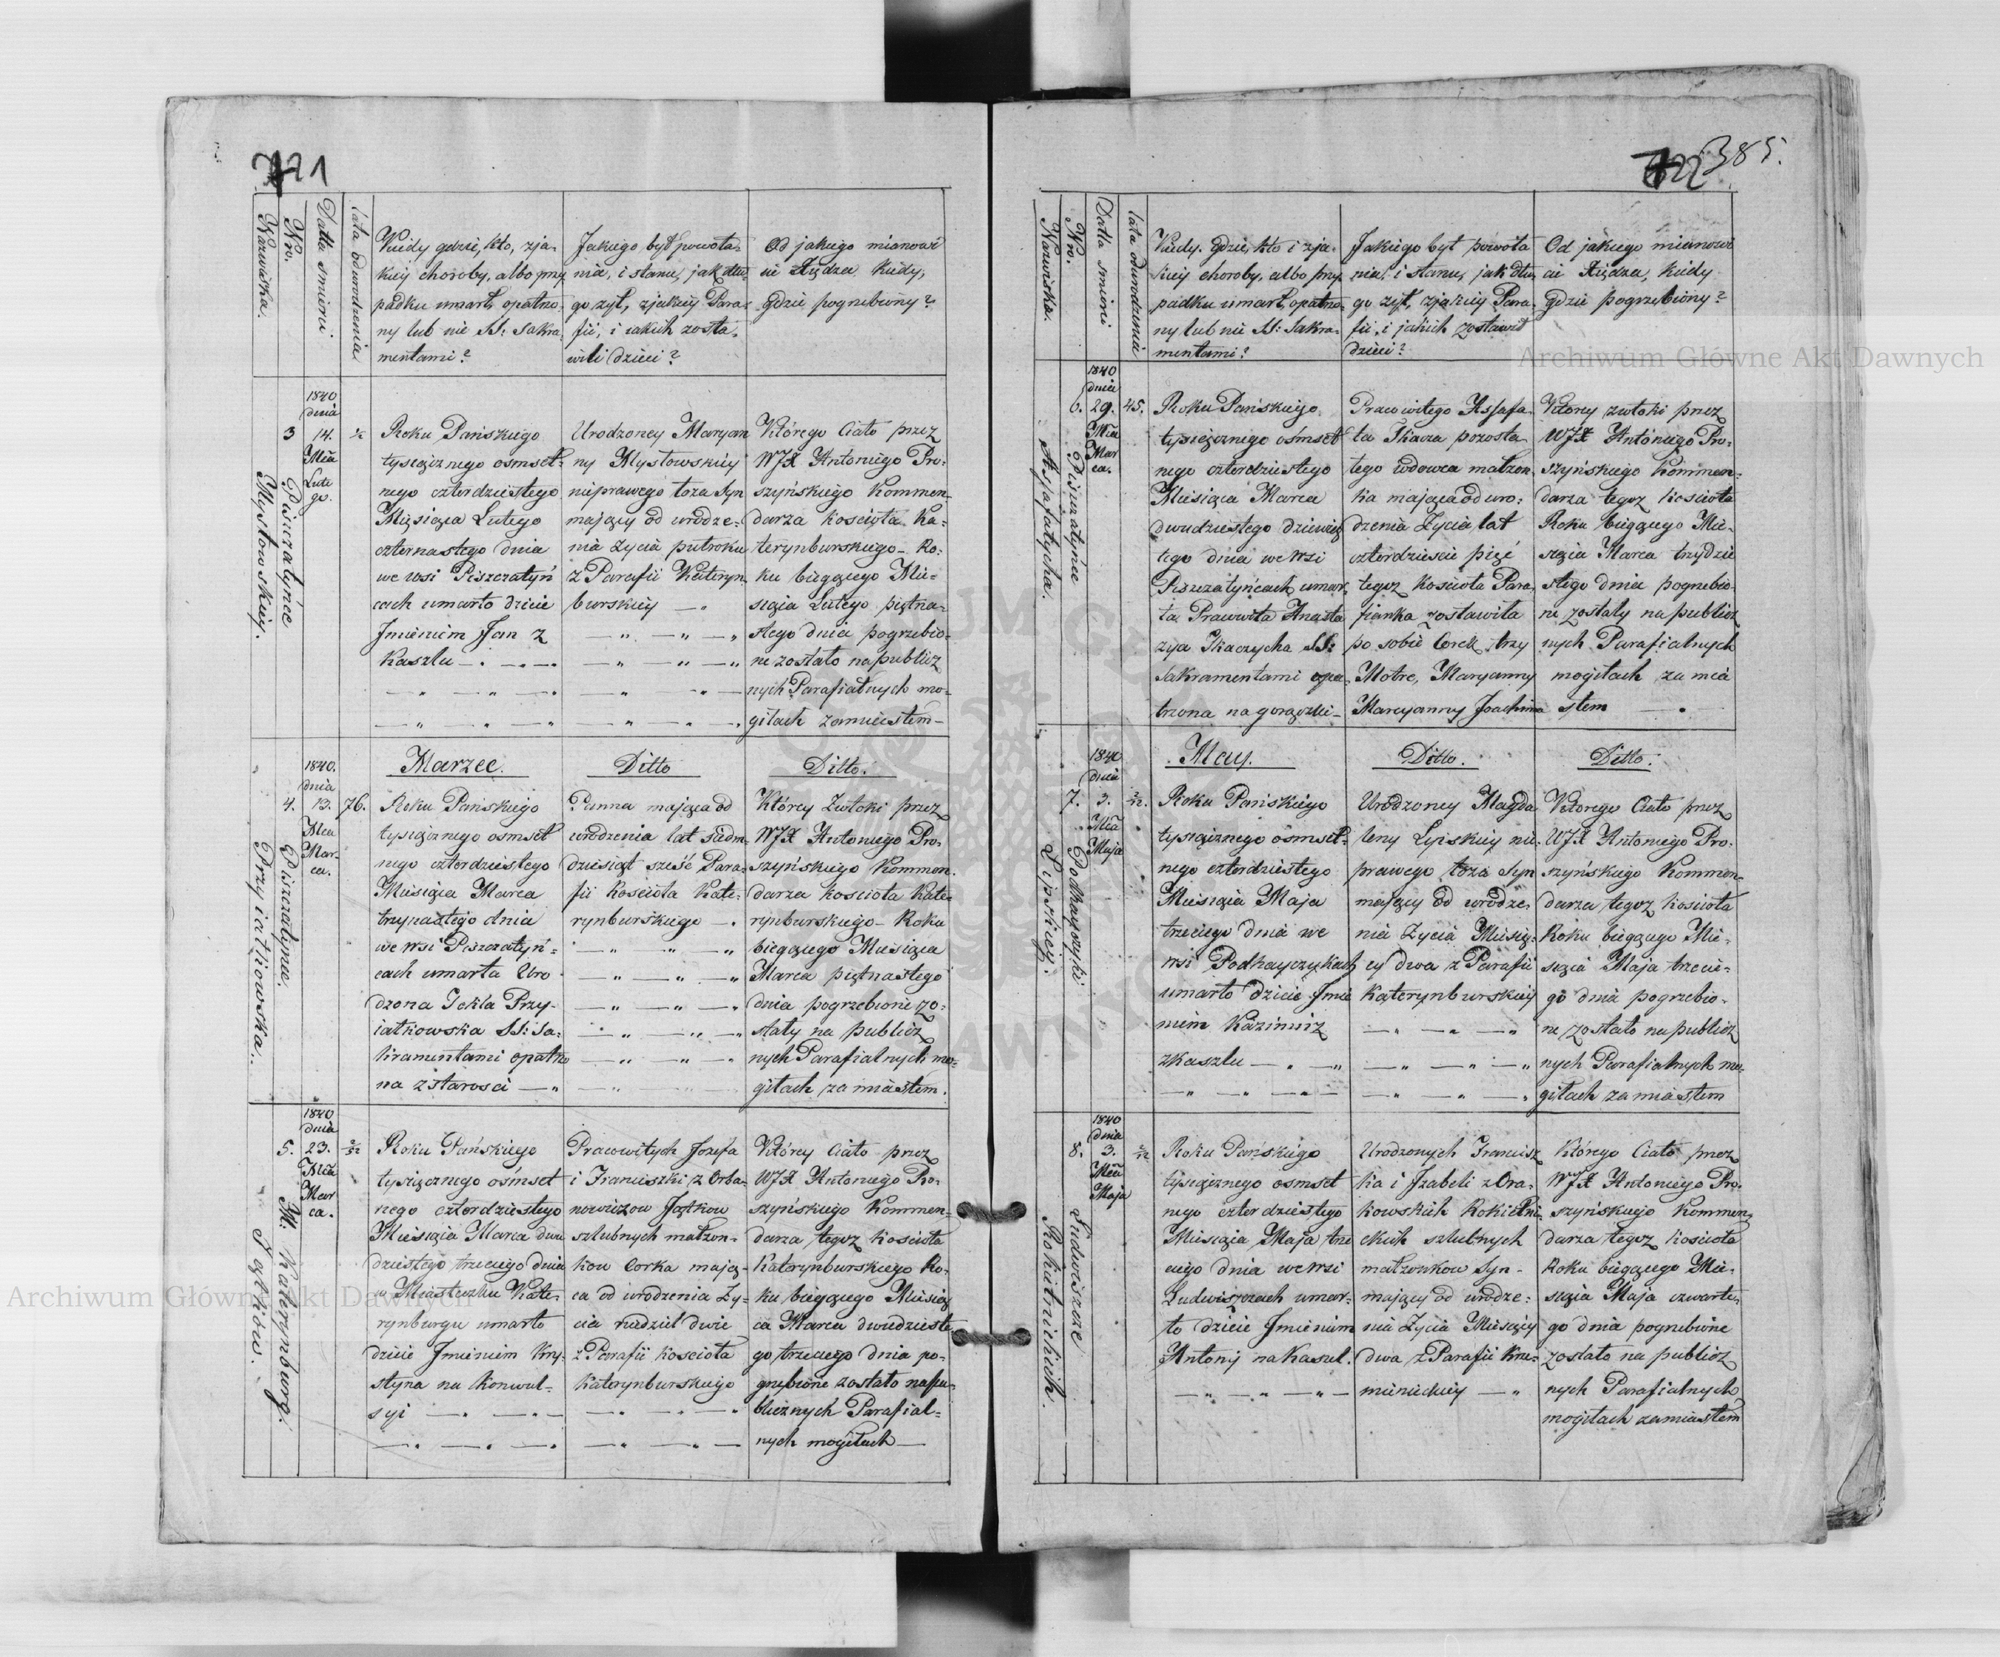 721
Nazwiska.
Nro.
Datta śmierci.
Lata od urodzenia
Kiedy gdzie, kto, zja-
kiey choroby, albo przy
padku umarł, opatrzo-
ny lub nie SS: Sakra-
mentami?
Jakiego był powoła-
nia, i stanu, jak dłu-
go żył, zjakiey Para-
fii, i iakich zosta-
wili dzieci?
Od jakiego mianowi
cie Xiędza kiedy,
gdzie pogrzebiony?
Mysłowskiey.
Piszczatyńce
3
1840
dnia
14.
Mca
Lute
go.
½
Roku Pańskiego
tysiącznego ośmset-
nego czterdziestego
Miesiąca Lutego
czternastego dnia
we wsi Piszczatyń
cach umarło dziecie
Jmieniem Jan z
Kaszlu
Urodzoney Maryan
ny Mysłowskiey
nieprawego łoża Syn
mający od urodze-
nia życia pułroku
z Parafii Kateryn
burskiey
Którego Ciało przez
WJX Antoniego Pro-
szyńskiego Kommen-
darza kościoła Ka-
terynburskiego Ro-
ku bieżącego Mie-
siąca Lutego piętna-
stego dnia pogrzebio-
ne zostało na publicz
nych Parafialnych mo-
giłach zamiastem
Przyiatkowska.
Piszczatyńce.
4.
1840.
dnia
13.
Mca
Mar-
ca.
76.
Marzec.
Roku Pańskiego
tysiącznego ośmset
nego czterdziestego
Miesiąca Marca
trzynastego dnia
we wsi Piszczatyń-
cach umarła Uro
dzona Tekla Przy-
iatkowska SS: Sa-
kramentami opatrzo
na z starości
Ditto
Panna mająca od
urodzenia lat siedm
dziesiąt sześć Para-
fii Kościoła Kate-
rynburskiego
Ditto.
Którey Zwłoki przez
WJX Antoniego Pro-
szyńskiego Kommen-
darza kościoła Kate-
rynburskiego Roku
bieżącego Miesiąca
Marca piętnastego
dnia pogrzebione zo-
stały na publicz
nych Parafialnych mo-
giłach za miastem.
M. Katerynburg.
5.
1840
dnia
23.
Mca
Mar
ca.
2/52
Roku Pańskiego
tysiącznego ośmset
nego czterdziestego
Miesiąca Marca dwu
dziestego trzeciego dnia
w Miasteczku Kate-
rynburgu umarło
dziecie Jmieniem Kry-
styna na konwul-
syi
Pracowitych Jozefa
i Franciszki z Orba-
nowiczow
szlubnych małżon-
kow Corka mają-
ca od urodzenia ży-
cia niedziel dwie
z Parafii kościoła
Katerynburskiego
Którey Ciało przez
WJX Antoniego Pro-
szyńskiego Kommen-
darza tegoz kościoła
Katerynburskiego Ro-
ku bieżącego Miesią
ca Marca dwudzieste
go trzeciego dnia po-
grzebione zostało na pu-
blicznych Parafial-
nych mogiłach
722
385.
Nazwiska.
Nro.
Datta śmierci
Lata od urodzenia
Kiedy. gdzie, kto i zja-
kiey choroby, albo przy-
padku umarł, opatrzo-
ny lub nie SS: Sakra-
mentami?
Jakiego był powoła
nia, i stanu, jak dłu
go żył, zjakiey Para-
fii, i jakich zostawił
dzieci?
Od jakiego mianowi
cie Xiędza, kiedy
gdzie pogrzebiony?
Piszczatyńce
6.
1840
dnia
29.
Mca
Mar
ca.
45.
Roku Pańskiego
tysiącznego ośmset
nego czterdziestego
Miesiąca Marca
dwudziestego dziewią
tego dnia we wsi
Piszczatyńcach umar
ła Pracowita Anasta
zya Tkaczycha SS:
Sakramentami opa-
trzona na gorączkę
Pracowitego Assafa-
ta Tkacza pozosta
łego wdowca małżon
ka mająca od uro-
dzenia Życia lat
czterdzieście pięć
tegoz kościoła Para-
fianka zostawiła
po sobie Corek trzy
Motre, Maryanny
Maryanny Joachima
Ktorey zwłoki przez
WJX Antoniego Pro-
szyńskiego Kommen-
darza tegoz kościoła
Roku bieżącego Mie-
siąca Marca trzydzie
stego dnia pogrzebio-
ne zostały na publicz
nych Parafialnych
mogiłach za mia
stem
Lipskiey.
Podhayczyki
7.
1840
dnia
3.
Mca
Maja
2/12.
May.
Roku Pańskiego
tysiącznego ośmset-
nego czterdziestego
Miesiąca Maja
trzeciego dnia we
wsi Podhayczykach
umarło dziecie Jmie
niem Kazimierz
zkaszlu
Ditto.
Urodzoney Magda
leny Lipskiey nie
prawego łoża Syn
mający od urodze-
nia Życia Miesię-
cy dwa z Parafii
Katerynburskiey
Ditto.
Ktorego Ciało przez
WJX Antoniego Pro-
szyńskiego Kommen-
darza tegoz kościoła
Roku bieżącego Mie-
siąca Maja trzecie-
go dnia pogrzebio-
ne zostało na publicz
nych Parafialnych mo-
giłach za miastem
Rokitnickich.
Ludwiszcze
8.
1840
dnia
3.
Mca
Maja
2/12
Roku Pańskiego
tysiącznego ośmset
nego czterdziestego
Miesiąca Maja trze
ciego dnia we wsi
Ludwiszczach umar-
ło dziecie Jmieniem
Antoni na Kaszel.
Urodzonych Francisz
ka i Jzabeli z Ora-
kowskich Rokietni-
ckich szlubnych
małżonkow Syn-
mający od urodze-
nia Życia Miesięcy
dwa z Parafii Krze-
mienieckiey
Którego Ciało przez
WJX Antoniego Pro-
szyńskiego Kommen
darza tegoz kościoła
Roku bieżącego Mie-
siąca Maja czwarte-
go dnia pogrzebione
zostało na publicz
nych Parafialnych
mogiłach zamiastem
Archiwum Główne Akt Dawnych
Archiwum Główne Akt Dawnych